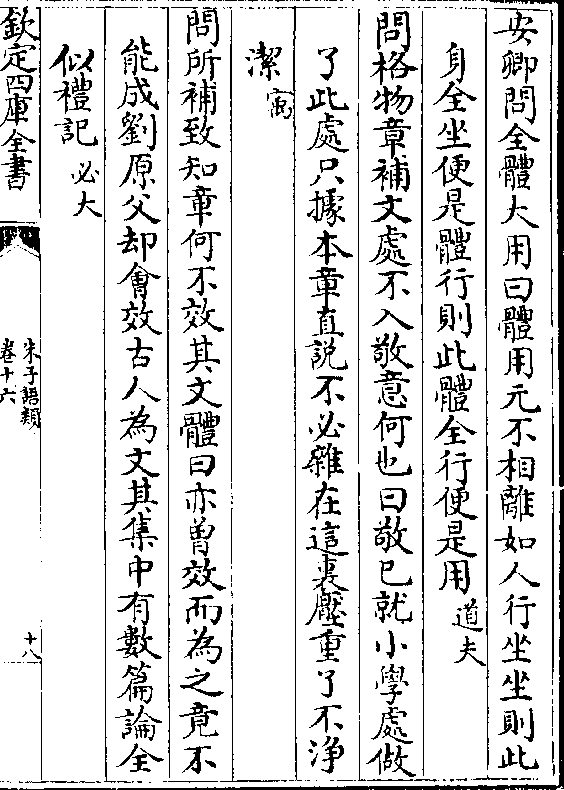 安卿問全體大用曰體用元不相離如人行坐坐則此
身全坐便是體行則此體全行便是用道夫
問格物章補文處不入敬意何也曰敬已就小學處做
了此處只據本章直說不必雜在這裏壓重了不淨
潔㝢
問所補致知章何不效其文體曰亦曾效而為之竟不
能成劉原父却會效古人為文其集中有數篇論全
似禮記必大
欽定四庫全書
朱子語類
卷十六
十八